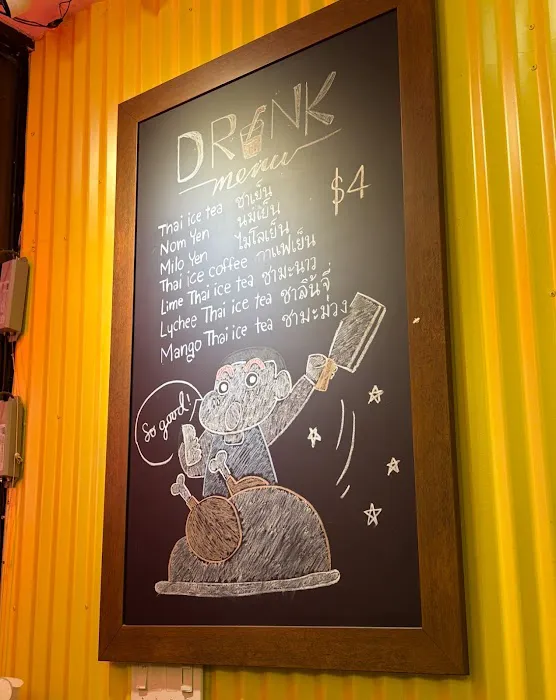 DRINK
menu
$4
Thai ice tea ชาเย็น
Nom Yen นมเย็น
Milo Yen ไมโลเย็น
Thai ice coffee กาแฟเย็น
Lime Thai ice tea ชามะนาว
Lychee Thai ice tea ชาลิ้นจี่
Mango Thai ice tea ชามะม่วง
So good!